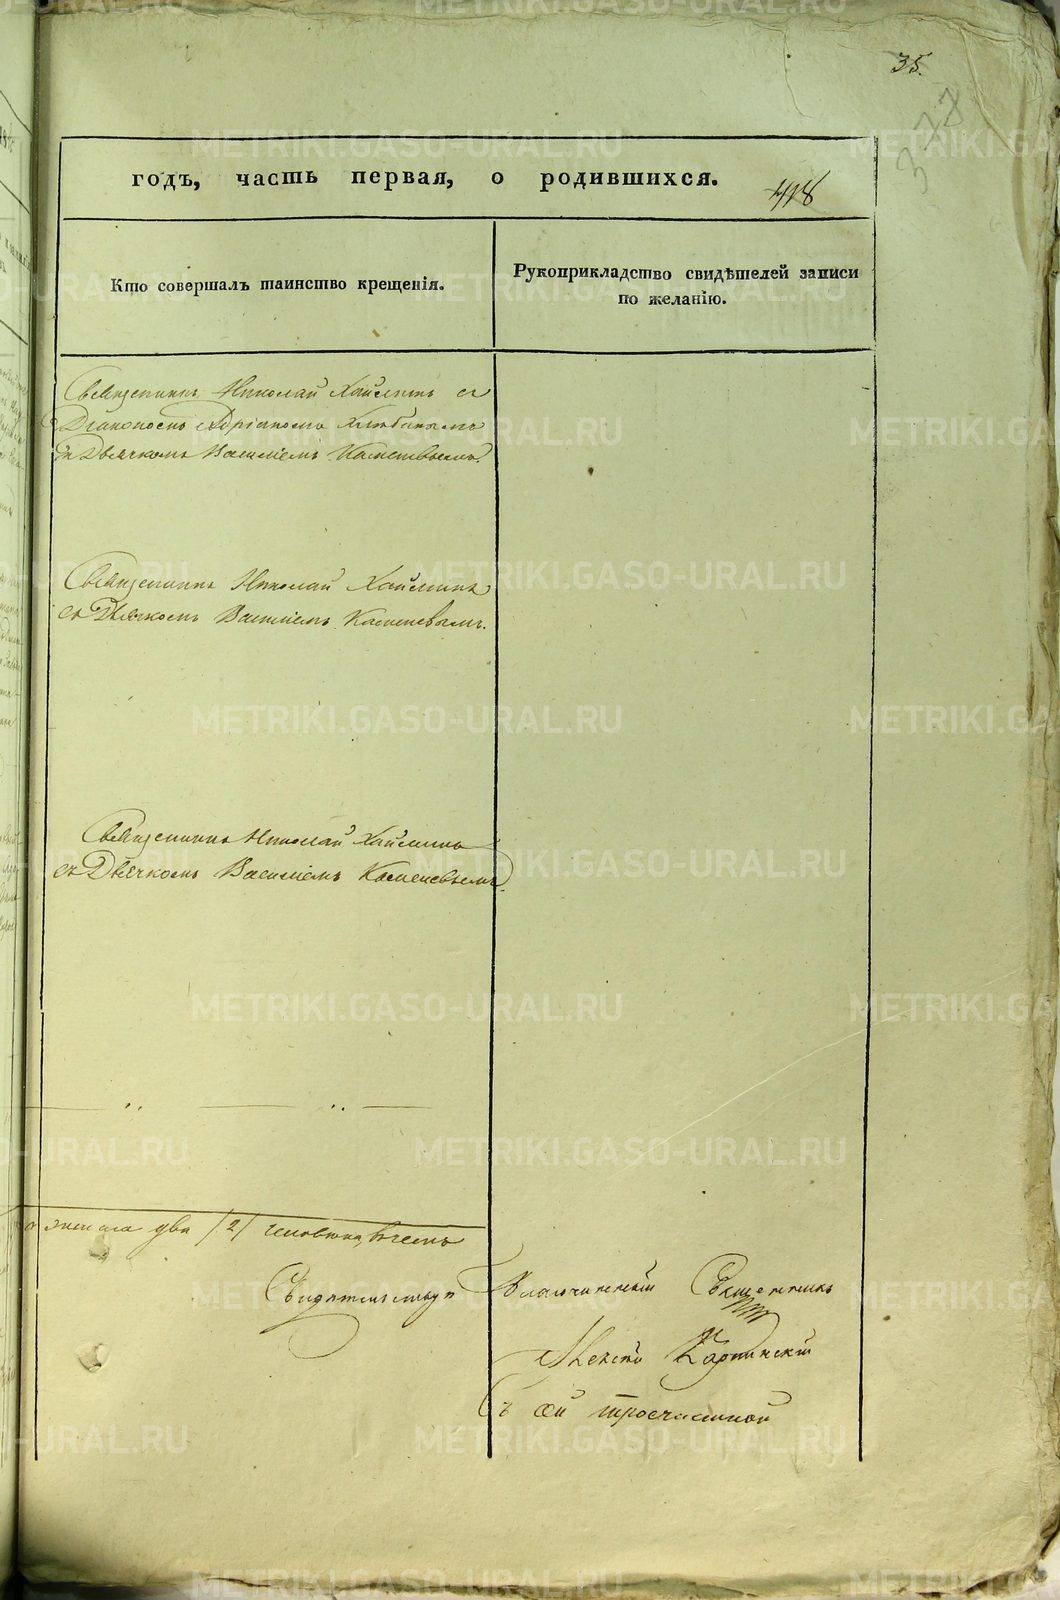 35.
378
годъ, часть первая, о родившихся.
418
Кто совершалъ таинство крещенія.
Рукоприкладство свидѣтелей записи
по желанію.
Священникъ Николай Хайминъ съ
Діакономъ Адріаномъ
и Дьячкомъ Василіемъ
Священникъ Николай Хайминъ
съ Дьячкомъ Василіемъ Каменевымъ.
Священникъ Николай Хайминъ
съ Дьячкомъ Василіемъ Каменевымъ.
два /2/ человѣка, всемъ
Благочинный Священникъ
Карпинскій
METRIKI.GASO-URAL.RU